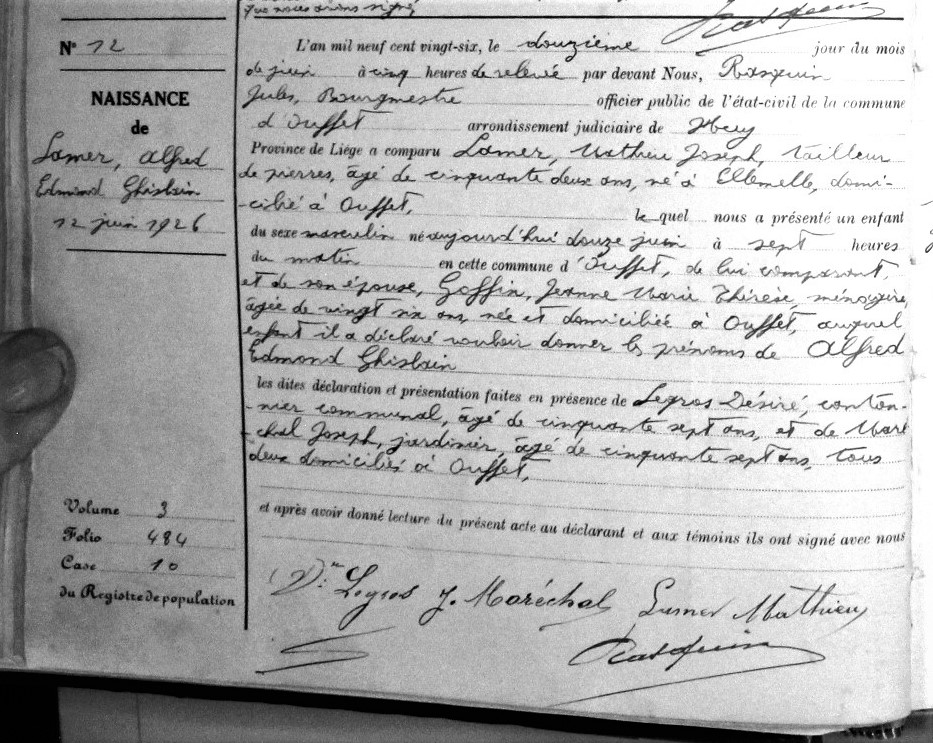 que nous avons signé,
N° 12
NAISSANCE
de
Lamer, Alfred
Edmond Ghislain
12 juin 1926
L'an mil neuf cent vingt-six, le douzième jour du mois
de juin à cinq heures de relevée par devant Nous, Rasquin
Jules, Bourgmestre officier public de l'état-civil de la commune
d'Ouffet arrondissement judiciaire de Huy
Province de Liége a comparu Lamer, Mathieu Joseph, tailleur
de pierres, âgé de cinquante deux ans, né à Ellemelle, domi-
-cilié à Ouffet, lequel nous a présenté un enfant
du sexe masculin né aujourd'hui douze juin à sept heures
du matin en cette commune d'Ouffet, de lui comparant,
et de son épouse, Goffin, Jeanne Marie Thérèse, ménagère,
âgée de vingt six ans, née et domiciliée à Ouffet, auquel
enfant il a déclaré vouloir donner les prénoms de Alfred
Edmond Ghislain
les dites déclaration et présentation faites en présence de Legros Désiré, canton-
-nier communal, âgé de cinquante sept ans, et de Maré
-chal Joseph, jardinier, âgé de cinquante sept ans, tous
deux domiciliés à Ouffet,
et après avoir donné lecture du présent acte au déclarant et aux témoins ils ont signé avec nous
Volume 3
Folio 484
Case 10
du Registre de population
Legros J. Maréchal Lamer Mathieu
Rasquin